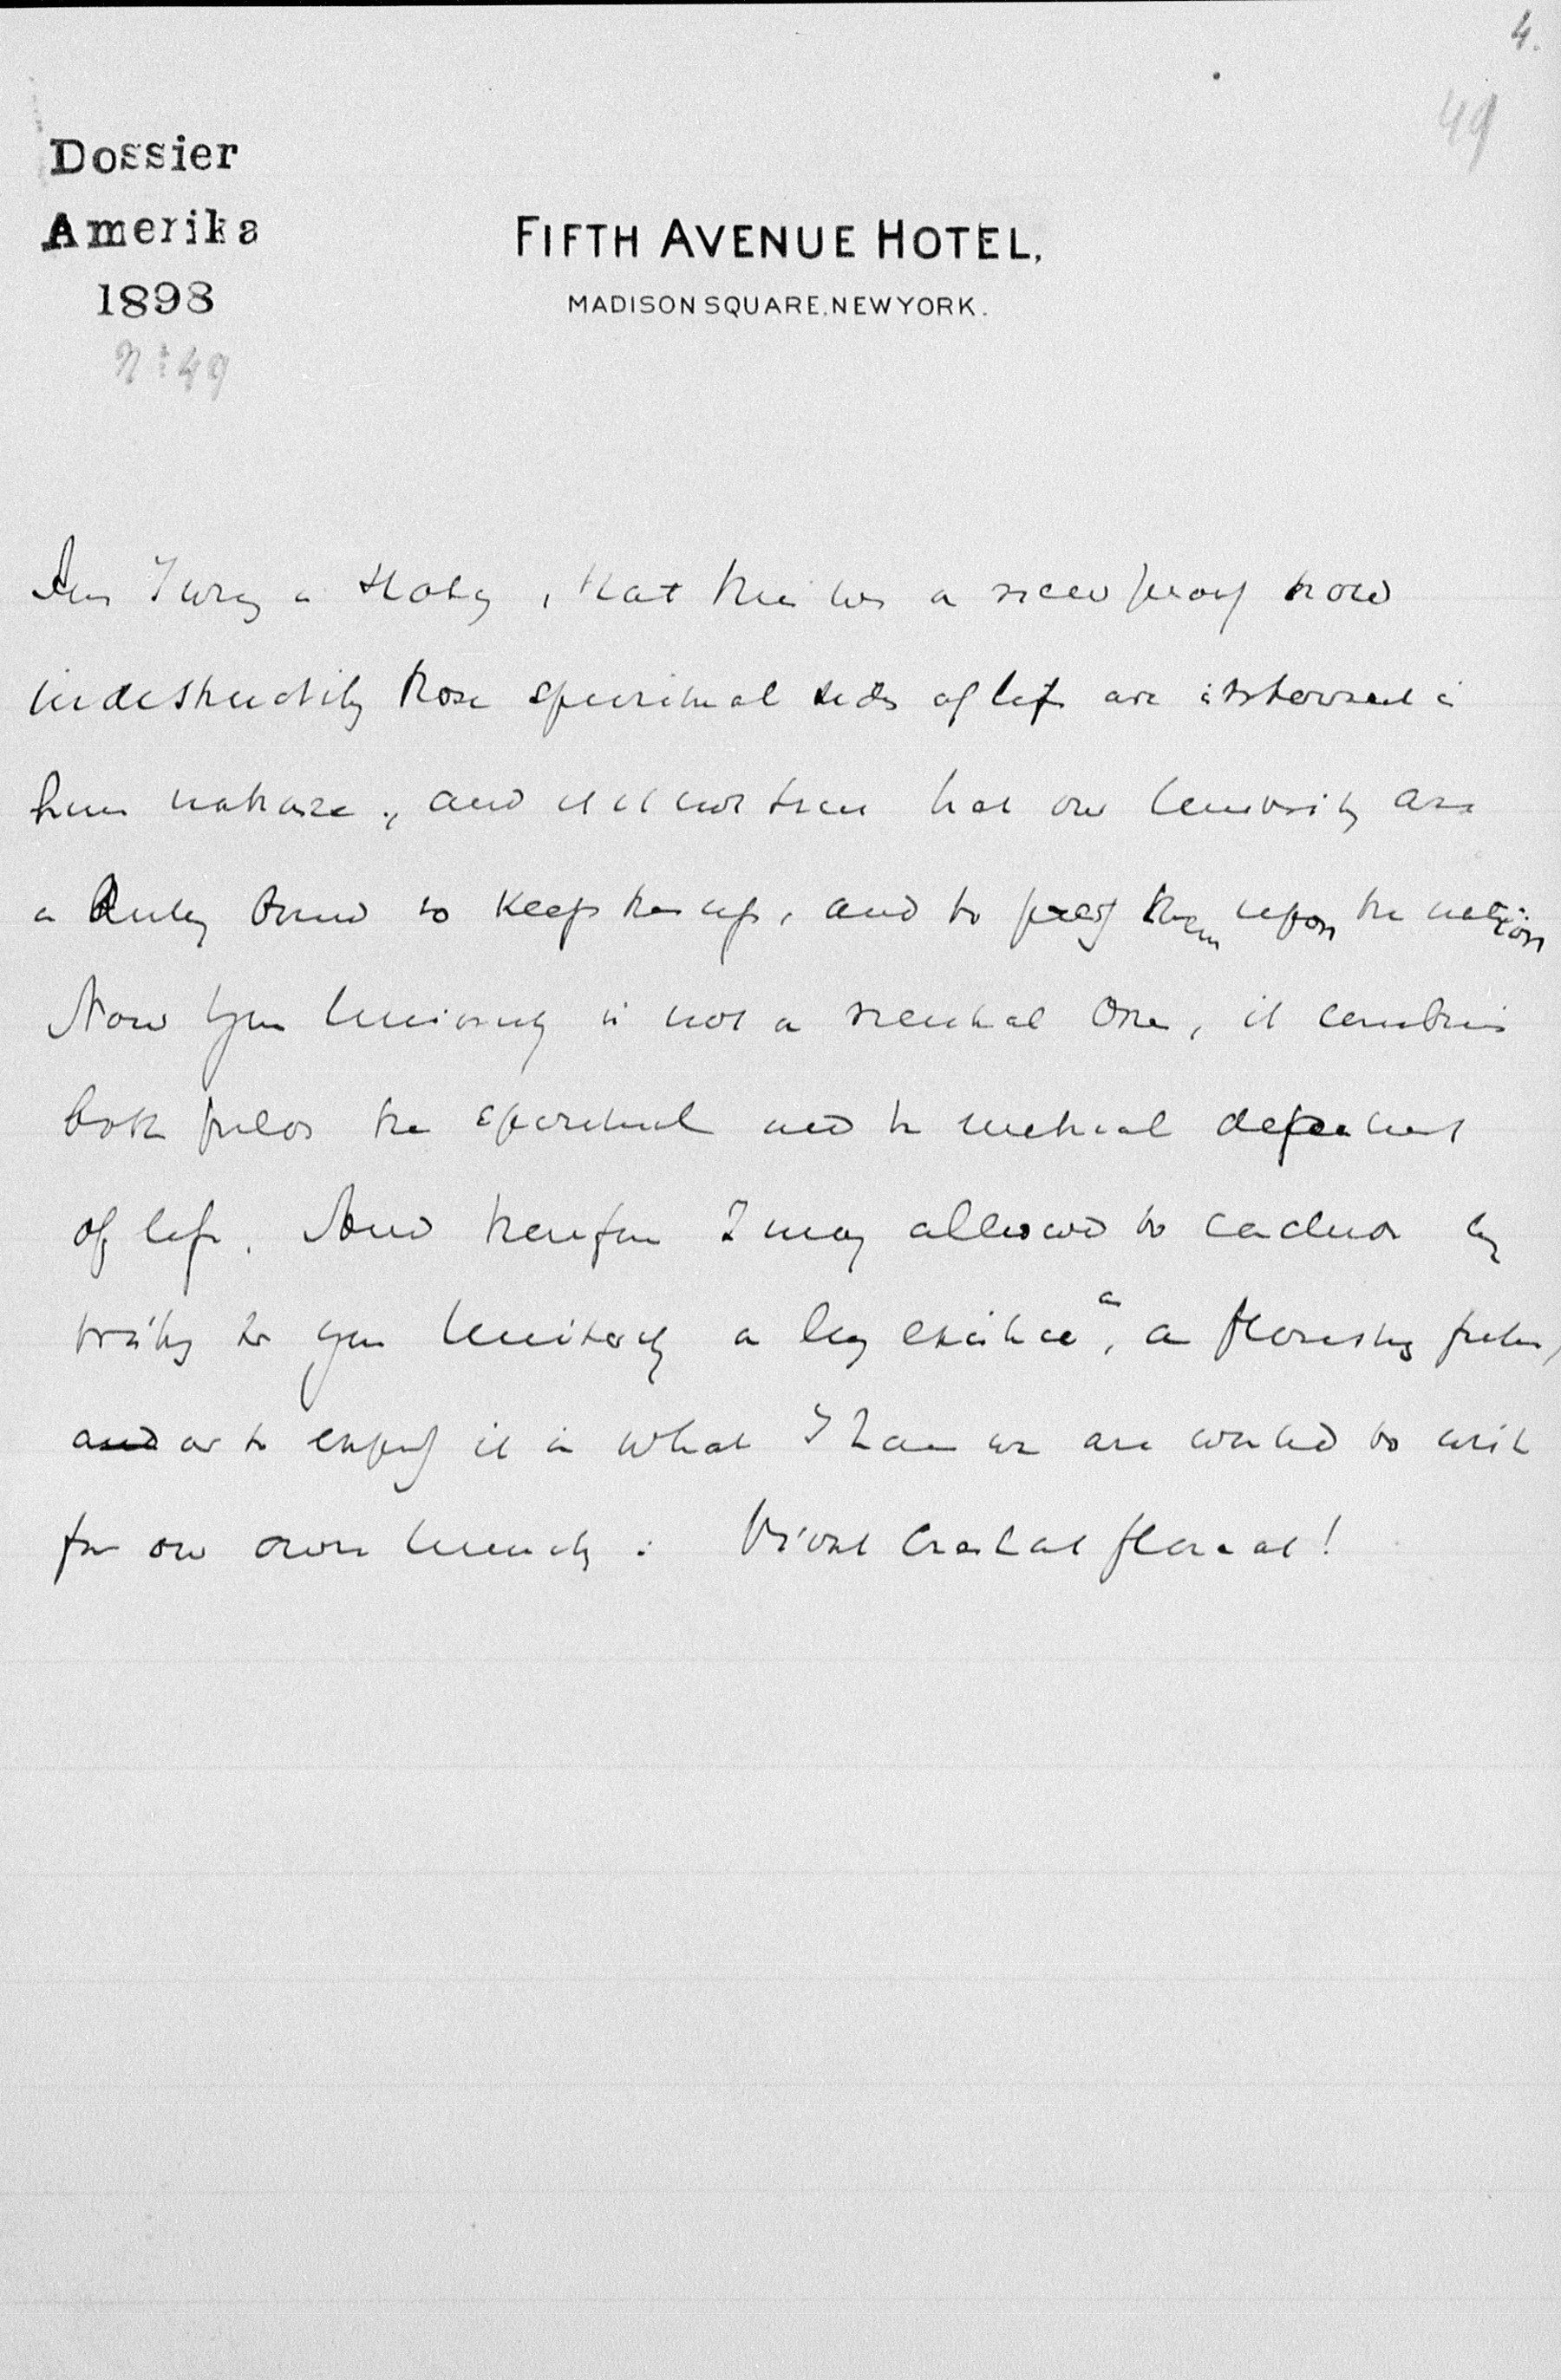 4.
49
Dossier
Amerika
1898
No 49
FIFTH AVENUE HOTEL,
MADISON SQUARE, NEW YORK.
in Italy, that this was a new proof how
indestructibly those spiritual sides of life are in
human nature, and it is not true that our University are
a bound to keep them up, and to press them upon the nation
Now your University is not a neutral one, it combines
both fields the spiritual and the
of life. And therefore I may allowed to conclude by
to your University a long existence, a flourishing future,
and or to express it in what I we are wanted to wish
for our own University: Vivat Crescat floreat!